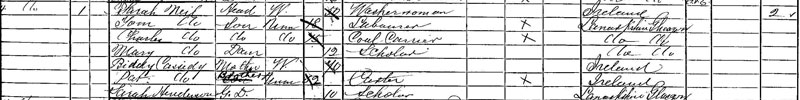 1 Sarah Neil Head W. 42 Washerwoman Ireland 2
Tom Do Son Unm Labourer x Lanarkshire Glasgow
Charles Do Do Do Coal Carrier x Do Do
Mary Do Daur 12 Scholar Do Do
Biddy Cassidy Mother W. Ireland
Pat Do Brother Unm x Ireland
Sarah Henderson G.D. 10 Scholar Lanarkshire Glasgow